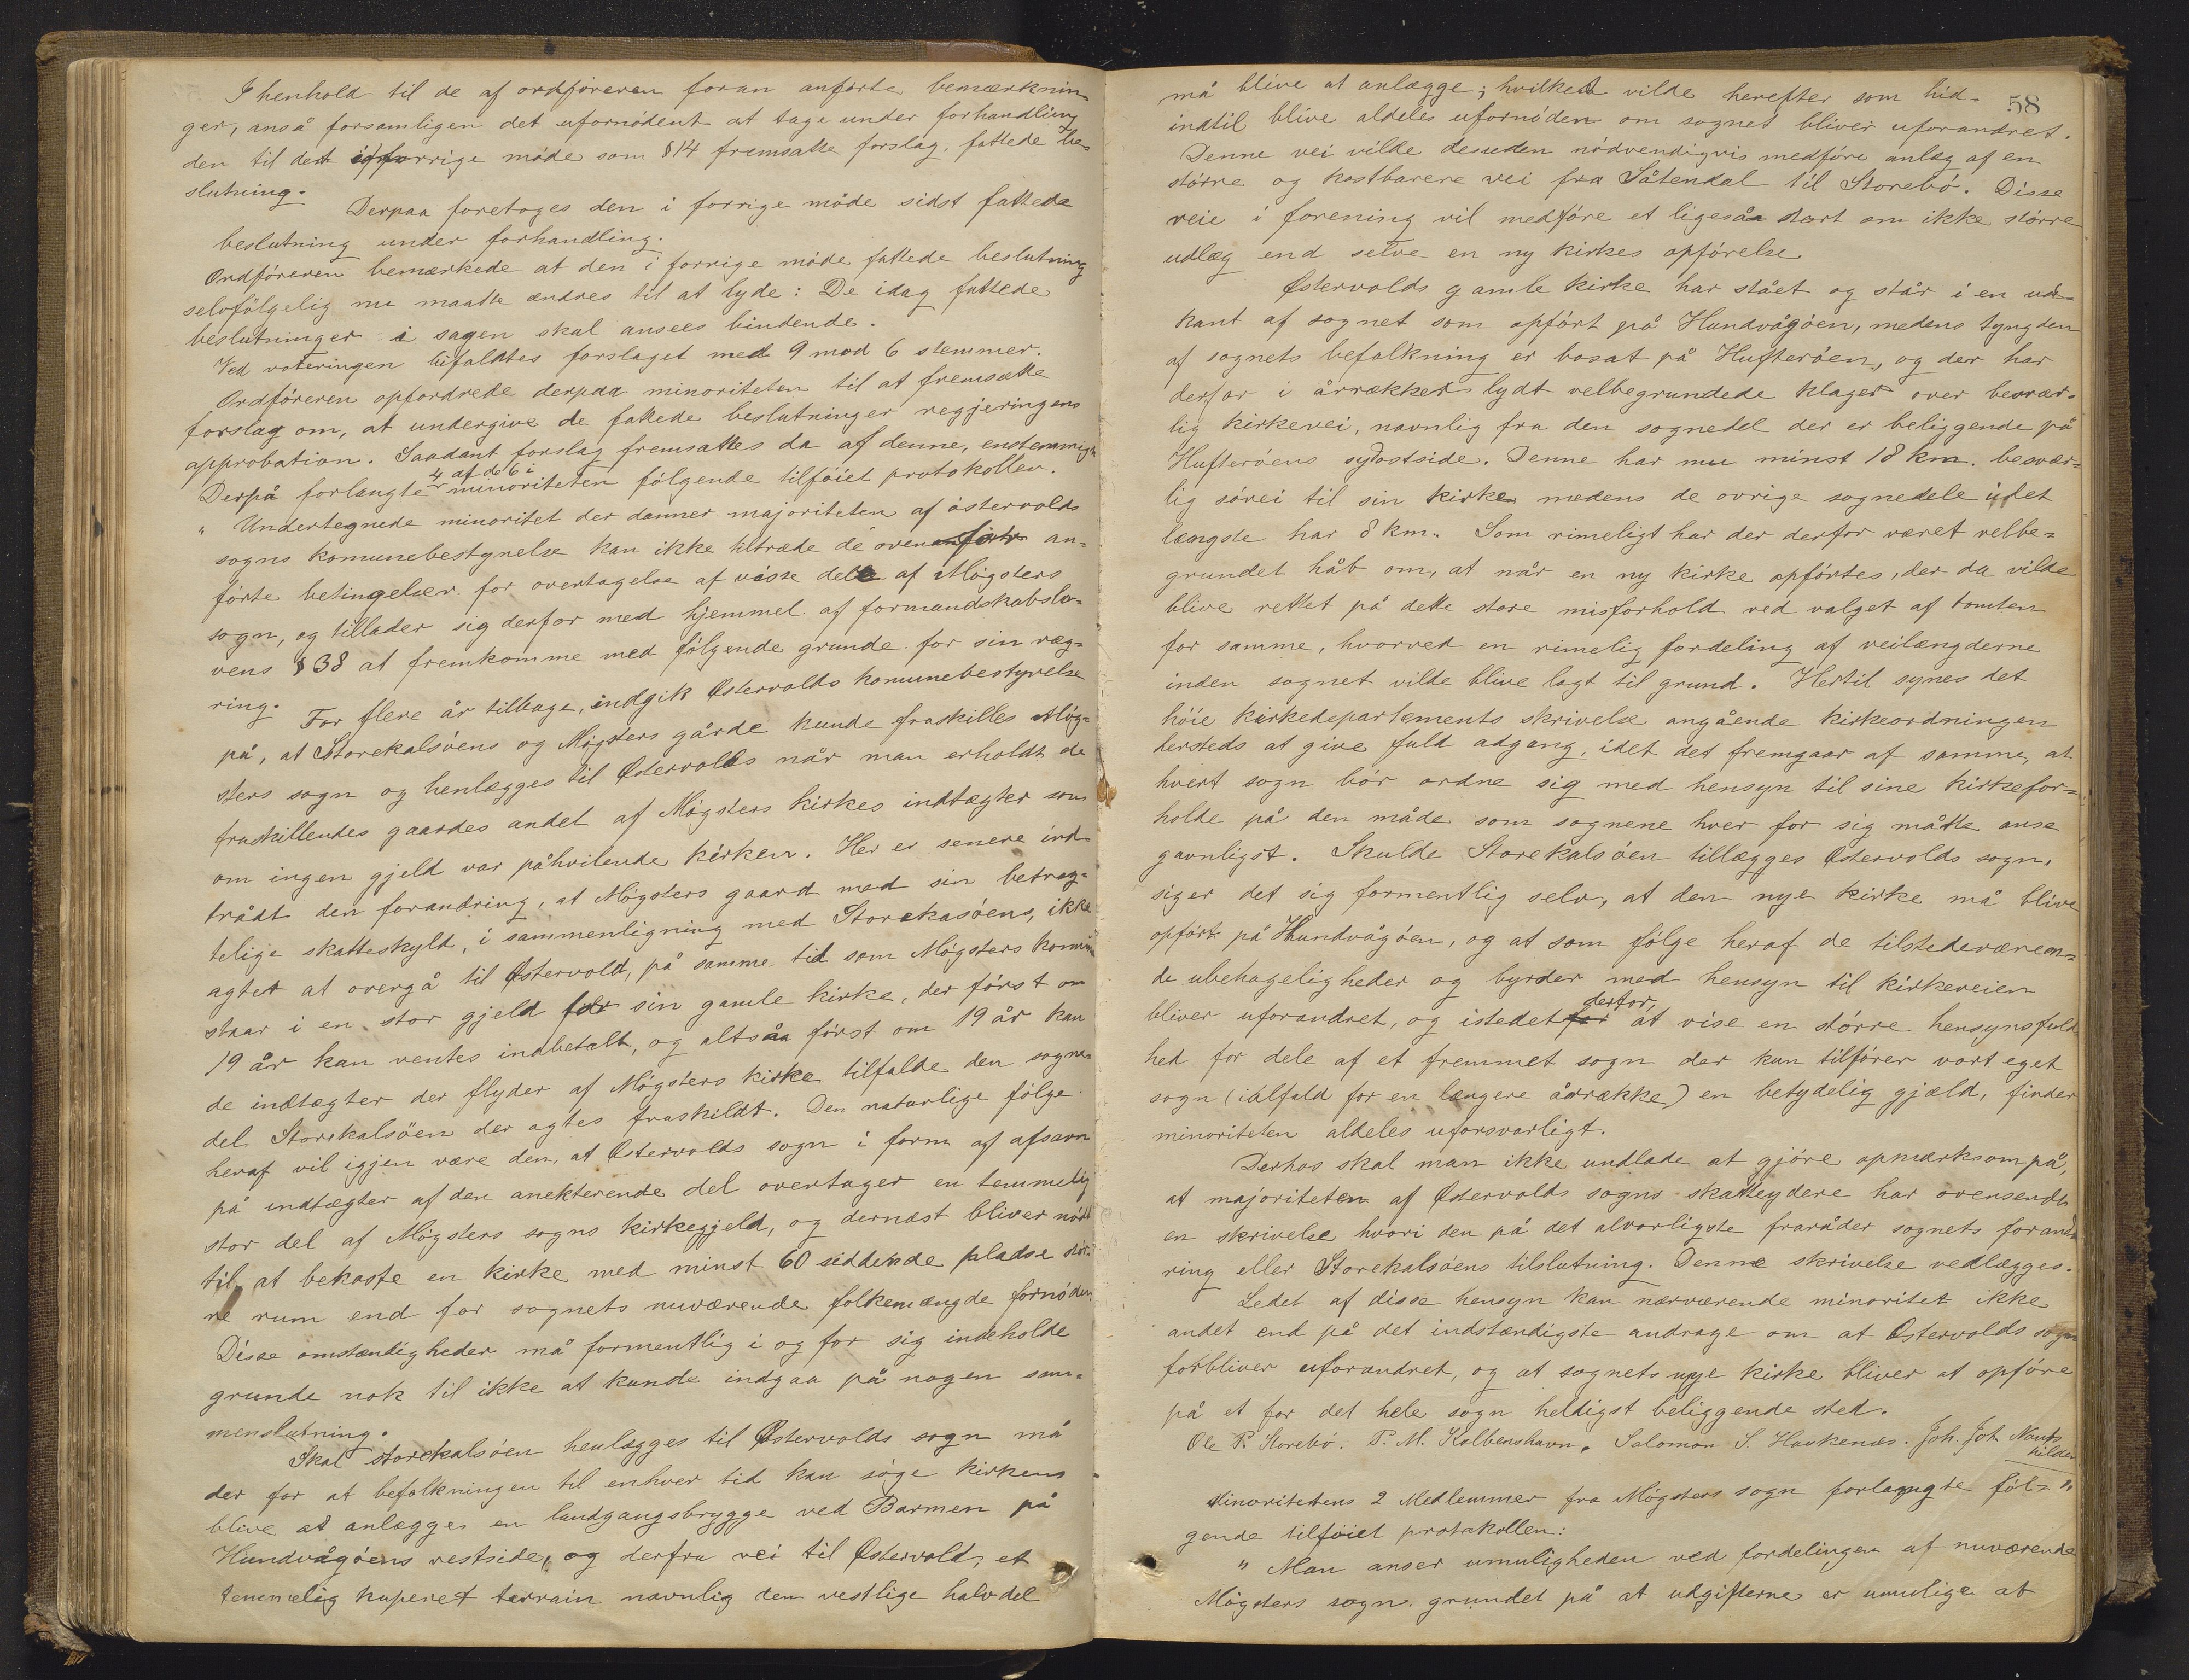 I henhold til de af ordføreren foran anførte bemærknin-
ger, anså forsamligen det ufornödent at tage under forhandling
den til det i forrige möde som §14 fremsatte forslag. fattede be-
slutning.
Derpaa foretoges den i forrige möde sidst fattede
beslutning under forhandling.
Ordföreren bemærkede at den i forrige möde fattede beslutning
selvfölgelig nu maatte ændres til at lyde: De idag fattede
beslutninger i sagen skal ansees bindende.
Ved voteringen bifaldtes forslaget med 9 mod 6 stemmer.
Ordföreren opfordrede derpaa minoriteten til at fremsætte
forslag om, at undergive de fattede beslutninger regjeringens
approbation. Saadant forslag fremsattes da af denne, enstemmigt
4 af de 6 i
Derpå forlangte minoriteten fölgende tilföiet protokollen.
" Undertegnede minoritet der danner majoriteten af östervolds
sogns komunebestyrelse kan ikke tiltræde de ovenanförte an-
förte betingelser for overtagelse af visse dele af Mögsters
sogn, og tillader sig derfor med hjemmel af formandskabslo-
vens §38 at fremkomme med fölgende grunde for sin væg-
ring.
For flere år tilbage, indgik Østervolds komunebestyrelse
på, at Storekalsöens og Mögsters gårde kunde fraskilles Mög-
sters sogn og henlægges til Östervolds når man erholdt de
fraskillendes gaardes andel af Mögsters kirkes indtægter som
om ingen gjeld var påhvilende kirken. Her er senere ind-
trådt den forandring, at Mögsters gaard med sin betrag-
telige skatteskyld, i sammenligning med Storekasöens, ikke
agtet at overgå til Østervold, på samme tid som Mögsters komune
staar i en stor gjeld for sin gamle kirke, der först om
19 år kan ventes indbetalt, og altsåa först om 19 år kan
de indtægter der flyder af Mögsters kirke tilfalde den sogne-
del Storekalsöen der agtes fraskildt. Den naturlige fölge
heraf vil igjen være den, at Østervolds sogn i form af afsavn
på indtægter af den anekterende del overtager en temmelig
stor del af Mögsters sogns kirkegjeld, og dernæst bliver nödt
til at bekoste en kirke med minst 60 siddende pladse stör-
re rum end for sognets nuværende folkemængde fornöden.
Disse omstændigheder må formentlig i og for sig indeholde
grunde nok til ikke at kunde indgaa på nogen sam-
menslutning.
Skal storekalsöen henlægges til Østervolds sogn må
der for at befolkningen til enhver tid kan söge kirkens
blive at anlægges en landgangsbrygge ved Barmen på
Hundvågöens vestside, og derfra vei til Østervold, et
temmelig kuperet terrain navnlig den vestlige halvdel
58
må blive at anlægge; hvilket vilde herefter som hid-
indtil blive aldeles ufornöden om sognet bliver uforandret.
Denne vei vilde desuden nödvendigvis medföre anlæg af en
större og kostbarere vei fra Såtendal til Storebö. Disse
veie i forening vil medföre et ligesåa stort om ikke större
udlæg end selve en ny kirkes opförelse
Østervolds gamle kirke har stået og står i en ud-
kant af sognet som opfört på Hundvågöen, medens tyngden
af sognets befalkning er bosat på Hufteröen, og der har
derfor i årrækker lydt velbegrundede klager over besvær-
lig kirkevei, navnlig fra den sognedel der er beliggende på
Hufteröens sydostside. Denne har nu minst 18 km. besvær-
lig sövei til sin kirke medens de ovrige sognedele i det
længste har 8 km. Som rimeligt har der derfor været velbe-
grundet håb om, at når en ny kirke opförtes, der da vilde
blive rettet på dette store misforhold ved valget af tomten
for samme, hvorved en rimelig fordeling af veilængderne
inden sognet vilde blive lagt til grund. Hertil synes det
höie kirkedepartements skrivelse angående kirkeordningen
hersteds at give fuld adgang, idet det fremgaar af samme, at
hvert sogn bör ordne sig med hensyn til sine kirkefor-
holde på den måde som sognene hver for sig måtte anse
gavnligst. Skulde Storekalsöen tillægges Østervolds sogn,
siger det sig formentlig selv, at den nye kirke må blive
opfört på Hundvågöen, og at som fölge heraf de tilstedeværen-
de ubehageligheder og byrder med hensyn til kirkeveien
derfor,
bliver uforandret, og istedet for at vise en större hensynsfuld
hed for dele af et fremmet sogn der kun tilförer vort eget
sogn (ialfald for en længere årrække) en betydelig gjæld, finder
minoriteten aldeles uforsvarligt.
Derhos skal man ikke undlade at gjöre opmærksom på,
at majoriteten af Østervolds sogns skatteydere har oversendt
en skrivelse hvori den på det alvorligste fraråder sognets forand-
ring eller Storekalsöens tilslutning. Denne skrivelse vedlægges.
Ledet af disse hensyn kan nærværende minoritet ikke
andet end på det indstændigste andrage om at Østervolds sogn
forbliver uforandret, og at sognets nye kirke bliver at opföre
på et for det hele sogn heldigst beliggende sted.
Ole P. Storebö. P. M. Kolbenshavn. Salomon S. Haukenæs. Joh. Joh. Nauts
kilder
Minoritetens 2 Medlemmer fra Mögsters sogn forlangte föl-
gende tilföiet protokollen:
" Man anser umuligheden ved fordelingen af nuværende
Mögsters sogn grundet på at udgifterne er umulige at